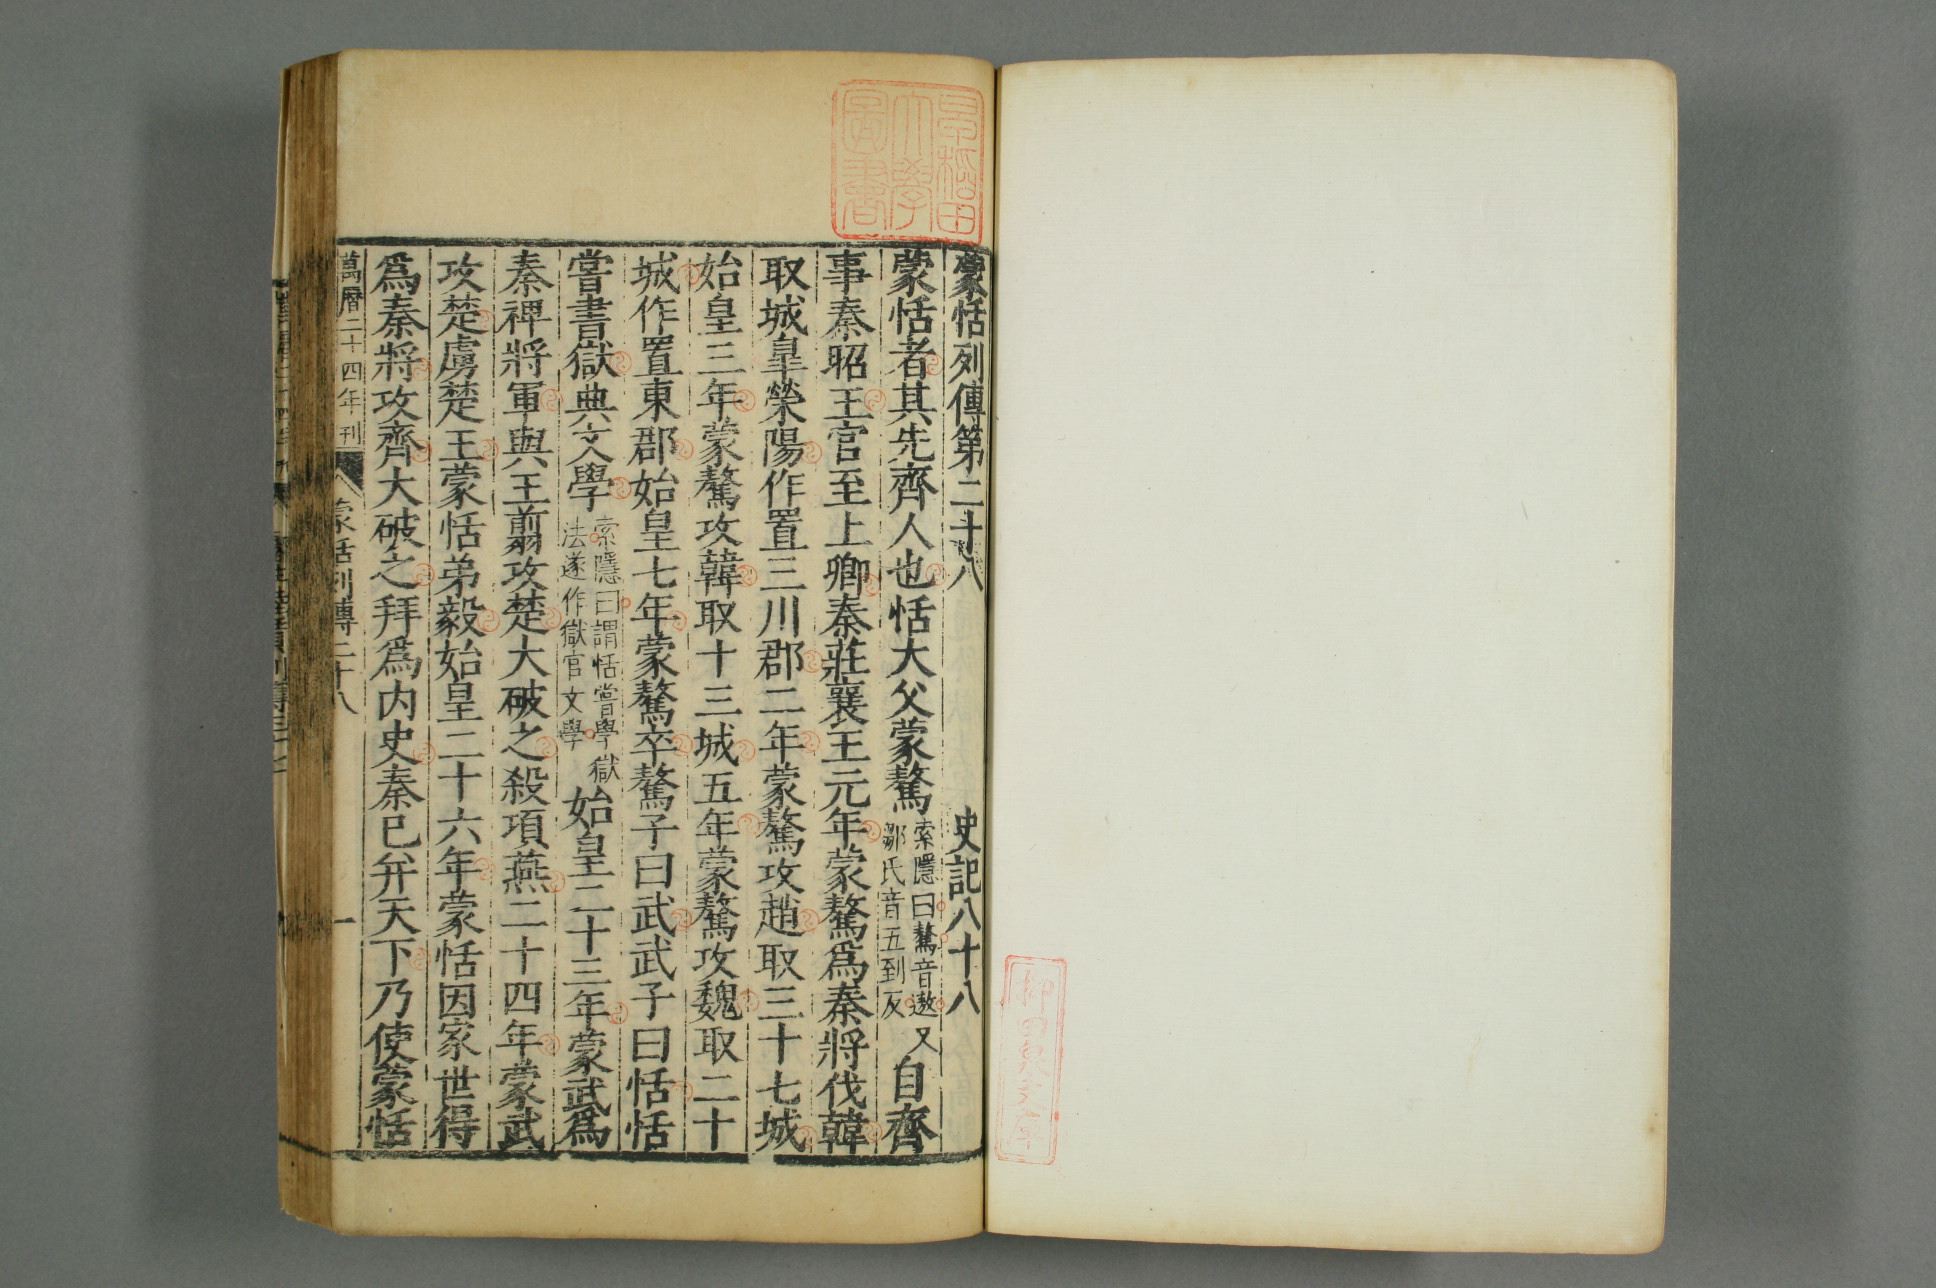 蒙恬列傳第二十八 史記八十八
蒙恬者其先齊人也恬大父蒙驁索隱曰驁音遨又鄒氏音五到反自齊
事秦昭王官至上卿秦莊襄王元年蒙驁爲秦將伐韓
取城皐滎陽作置三川郡二年蒙驁攻趙取三十七城
始皇三年蒙驁攻韓取十三城五年蒙驁攻魏取二十
城作置東郡始皇七年蒙驁卒驁子曰武武子曰恬恬
嘗書獄典文學索隱曰謂恬嘗學獄法遂作獄官文學始皇二十三年蒙武爲
秦裨將軍與王翦攻楚大破之殺項燕二十四年蒙武
攻楚虜楚王蒙恬弟毅始皇二十六年蒙恬因家世得
爲秦將攻齊大破之拜爲内史秦已并天下乃使蒙恬
萬曆二十四年刊 蒙恬列傳二十八 一
早稻田
大學
圖書